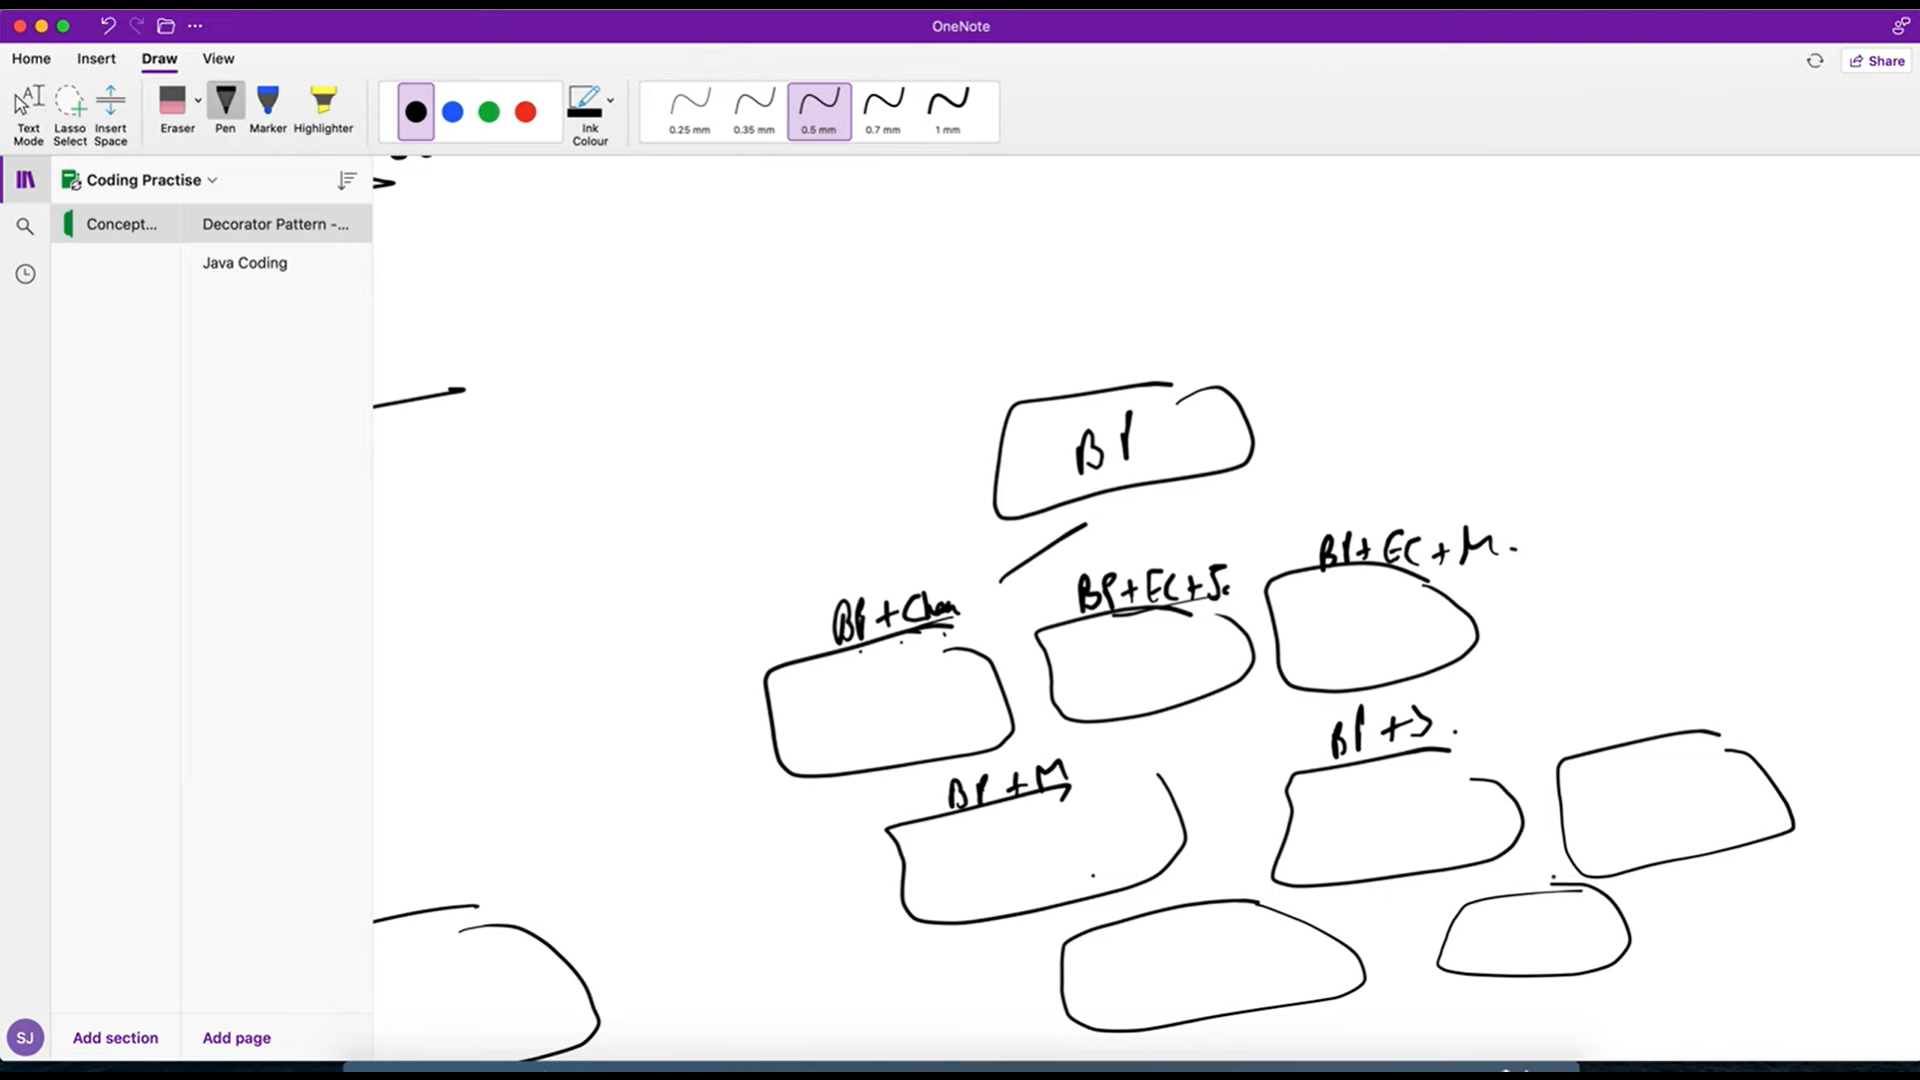 OneNote
Home Insert Draw View
Share
Text Mode
Lasso Select
Insert Space
Eraser
Pen
Marker
Highlighter
Ink Colour
0.25 mm
0.35 mm
0.5 mm
0.7 mm
1 mm
Coding Practise
Concept...
Decorator Pattern -...
Java Coding
BP
BP+EC+M.
BP+EC+S.
BP+
BP+S.
BP+M
SJ
Add section
Add page